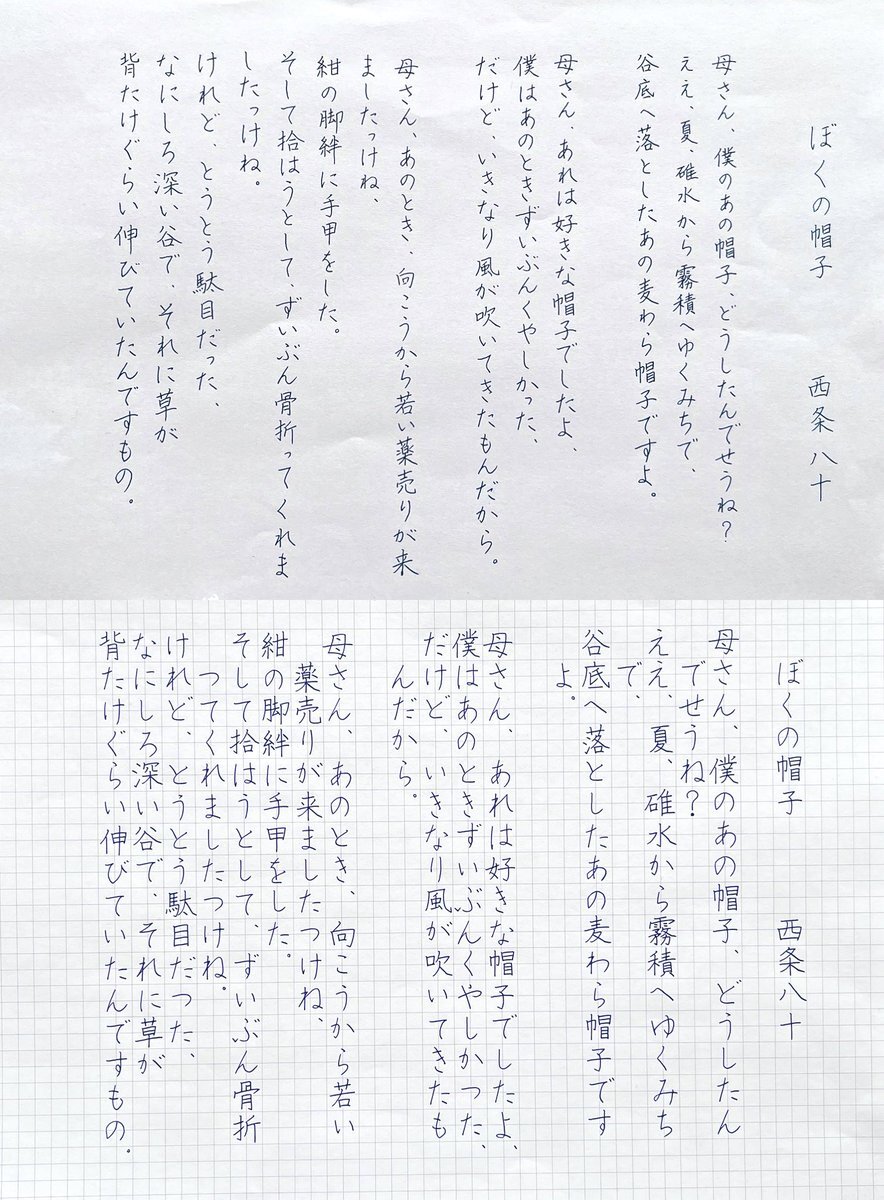 ぼくの帽子　　　西条 八十
母さん、僕のあの帽子、どうしたんでせうね？
ええ、夏、碓水から霧積へゆくみちで、
谷底へ落としたあの麦わら帽子ですよ。
母さん、あれは好きな帽子でしたよ、
僕はあのときずいぶんくやしかった、
だけど、いきなり風が吹いてきたもんだから。
母さん、あのとき、向こうから若い薬売りが来
ましたっけね、
紺の脚絆に手甲をした。
そして拾はうとして、ずいぶん骨折ってくれま
したっけね。
けれど、とうとう駄目だった、
なにしろ深い谷で、それに草が
背たけぐらい伸びていたんですもの。
ぼくの帽子　　　西条八十
母さん、僕のあの帽子、どうしたん
でせうね？
ええ、夏、碓水から霧積へゆくみち
で、
谷底へ落としたあの麦わら帽子です
よ。
母さん、あれは好きな帽子でしたよ、
僕はあのときずいぶんくやしかつた、
だけど、いきなり風が吹いてきたも
んだから。
母さん、あのとき、向こうから若い
薬売りが来ましたつけね、
紺の脚絆に手甲をした。
そして拾はうとして、ずいぶん骨折
つてくれましたつけね。
けれど、とうとう駄目だつた、
なにしろ深い谷で、それに草が
背たけぐらい伸びていたんですもの。